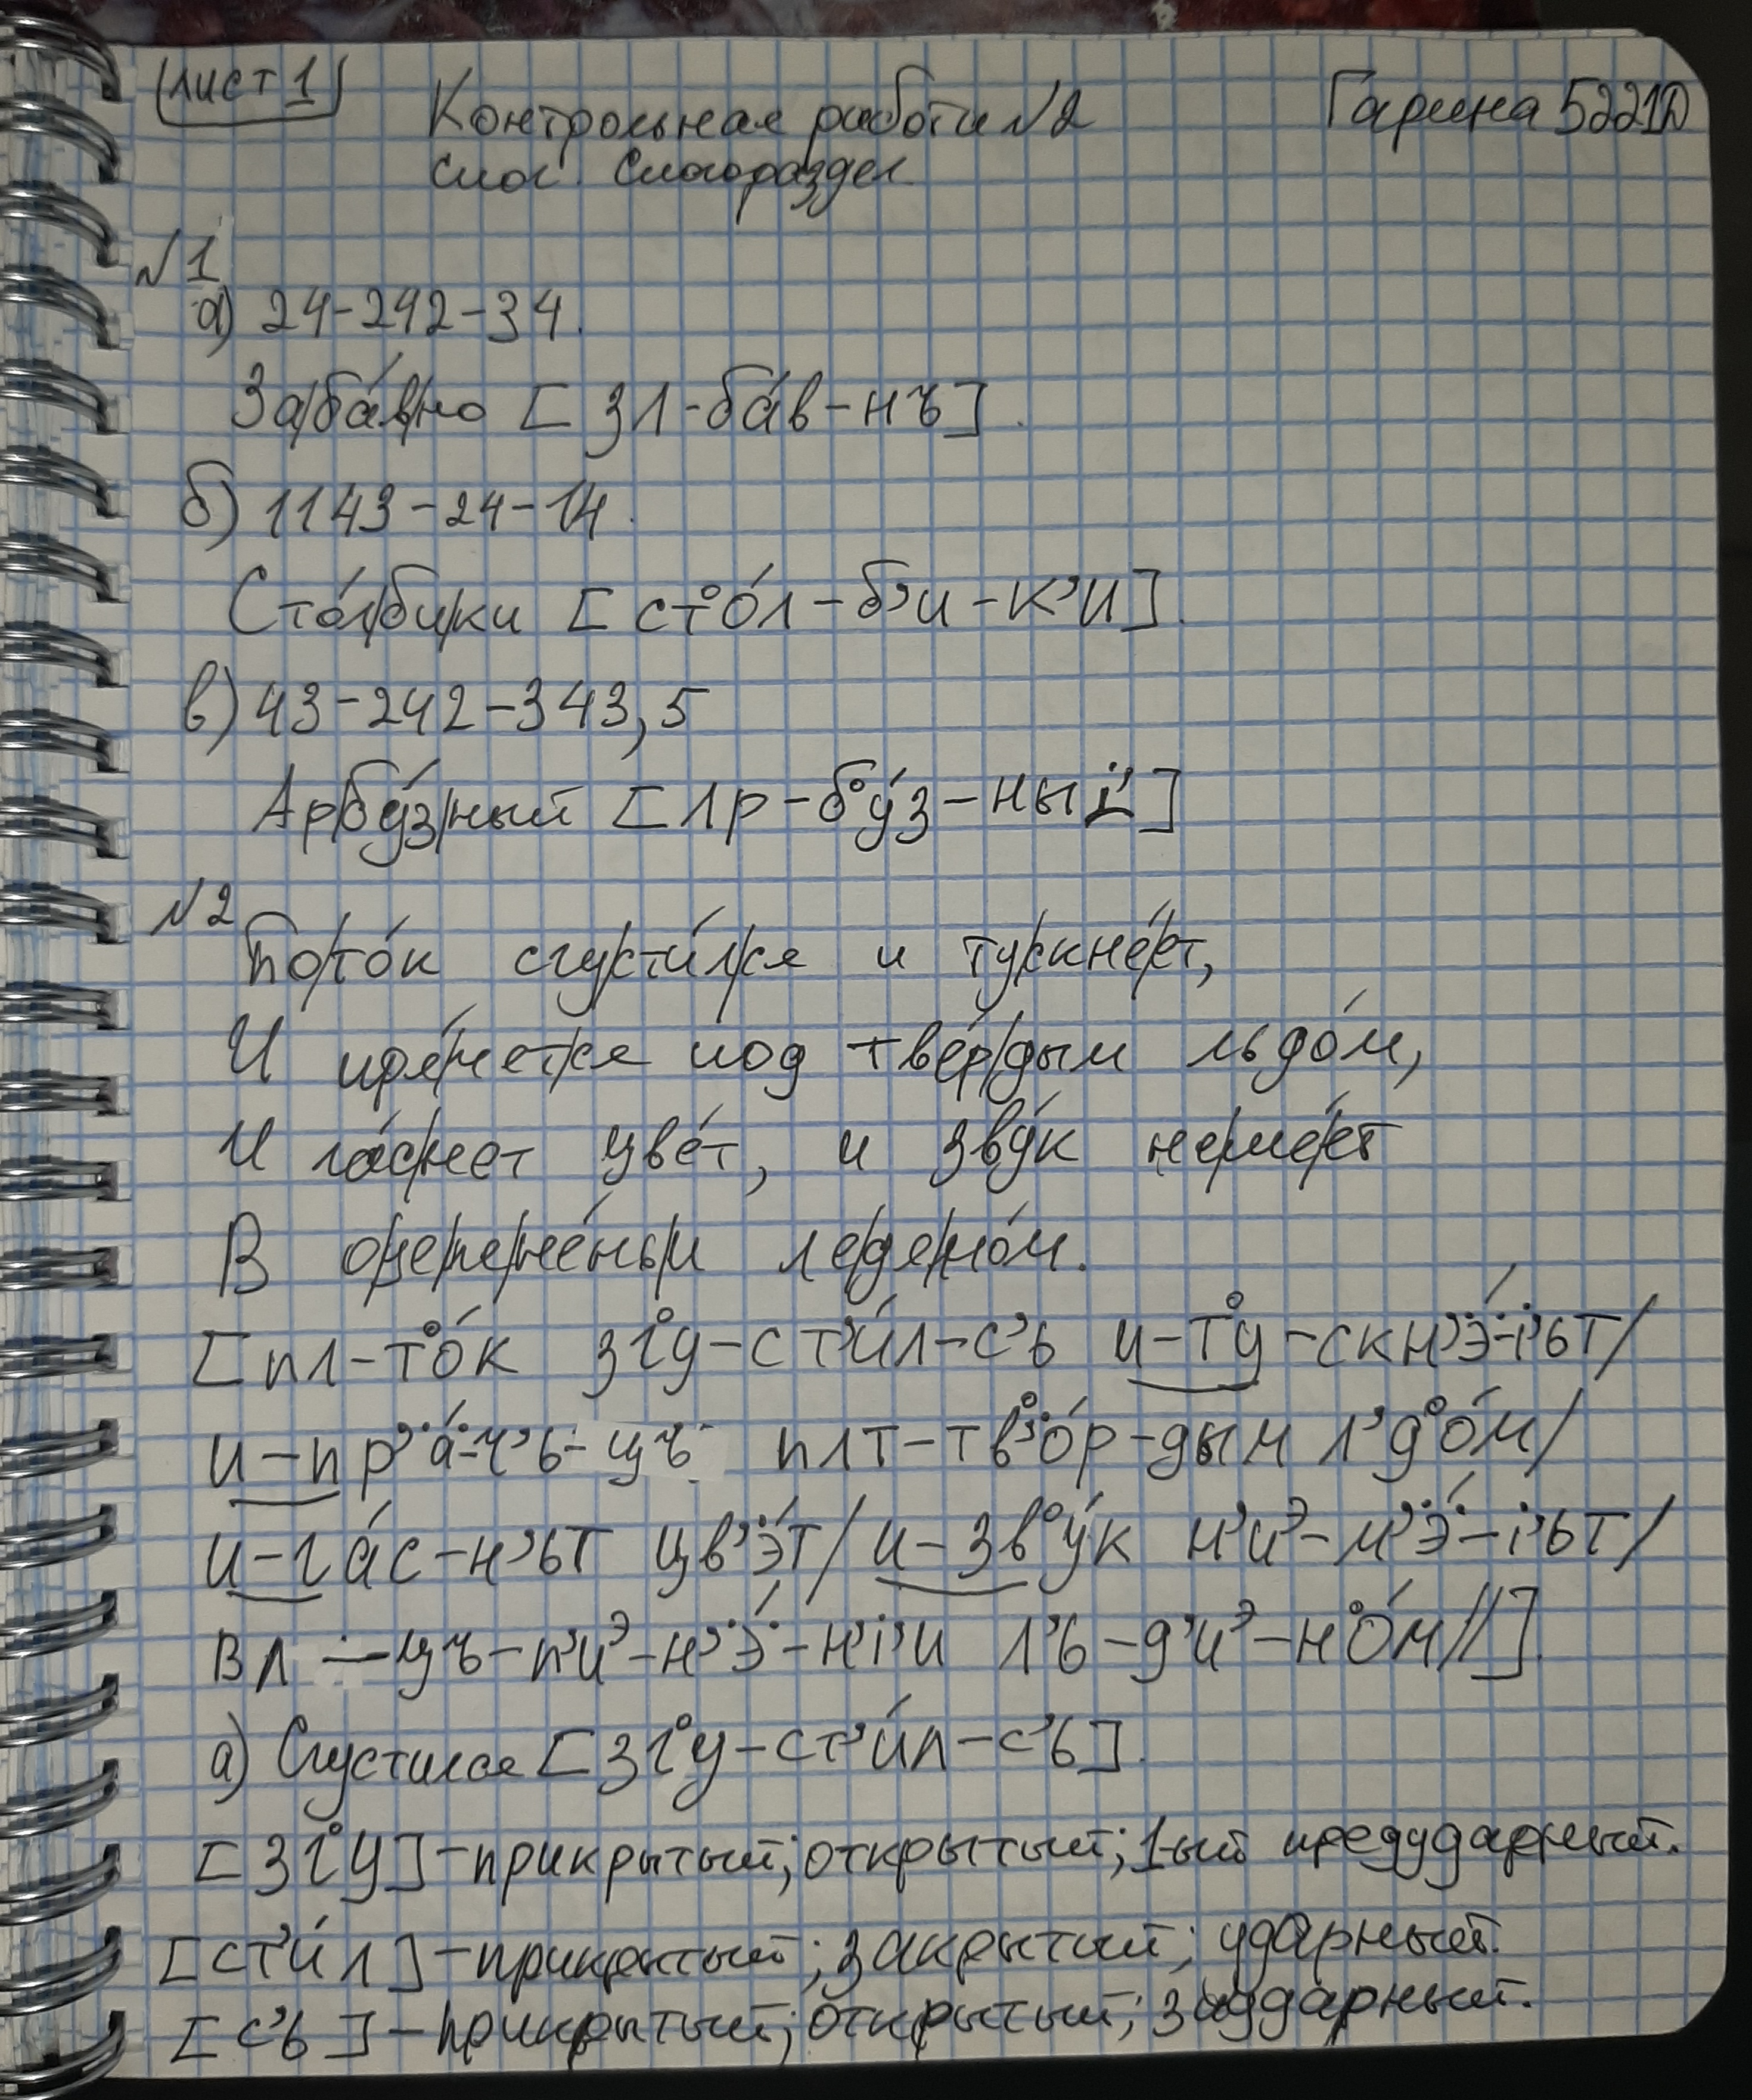 Лист 1
Контрольная работа №2
Гарина 5221Д
Слог. Слогораздел.
№1
а) 24-242-34.
За/ба́в/но [зʌ-ба́в-нъ].
б) 1143-24-14.
Сто́л/би/ки [ст°о́л-б'и-к'и].
в) 43-242-343,5
Ар/бу́з/ный [ʌр-б°у́з-ныi̯']
№2
По/то́к сгу/сти́л/ся и ту/скне́/ет,
И пря́/чет/ся под твё́р/дым льдо́м,
И га́с/нет цве́т, и зву́к не/ме́/ет
В о/це/пе/не́/нь/и ле/дя/но́м.
[пʌ-т°о́к зг°у-ст'и́л-с'ь и-т°у-скн'э́-i̯'ьт/
и-пр'а́-ч'ь-цъ пʌт-тв'°о́р-дым л'д°о́м/
и-га́с-н'ьт цв'э́т/ и-зв°у́к н'иэ-м'э́-i̯'ьт/
вʌ-цъ-п'иэ-н'э́-н'i̯'и л'ь-д'иэ-н°о́м//].
а) Сгустился [зг°у-ст'и́л-с'ь].
[зг°у]-прикрытый; открытый; 1-ый предударный.
[ст'и́л]-прикрытый; закрытый; ударный.
[с'ь]-прикрытый; открытый; заударный.